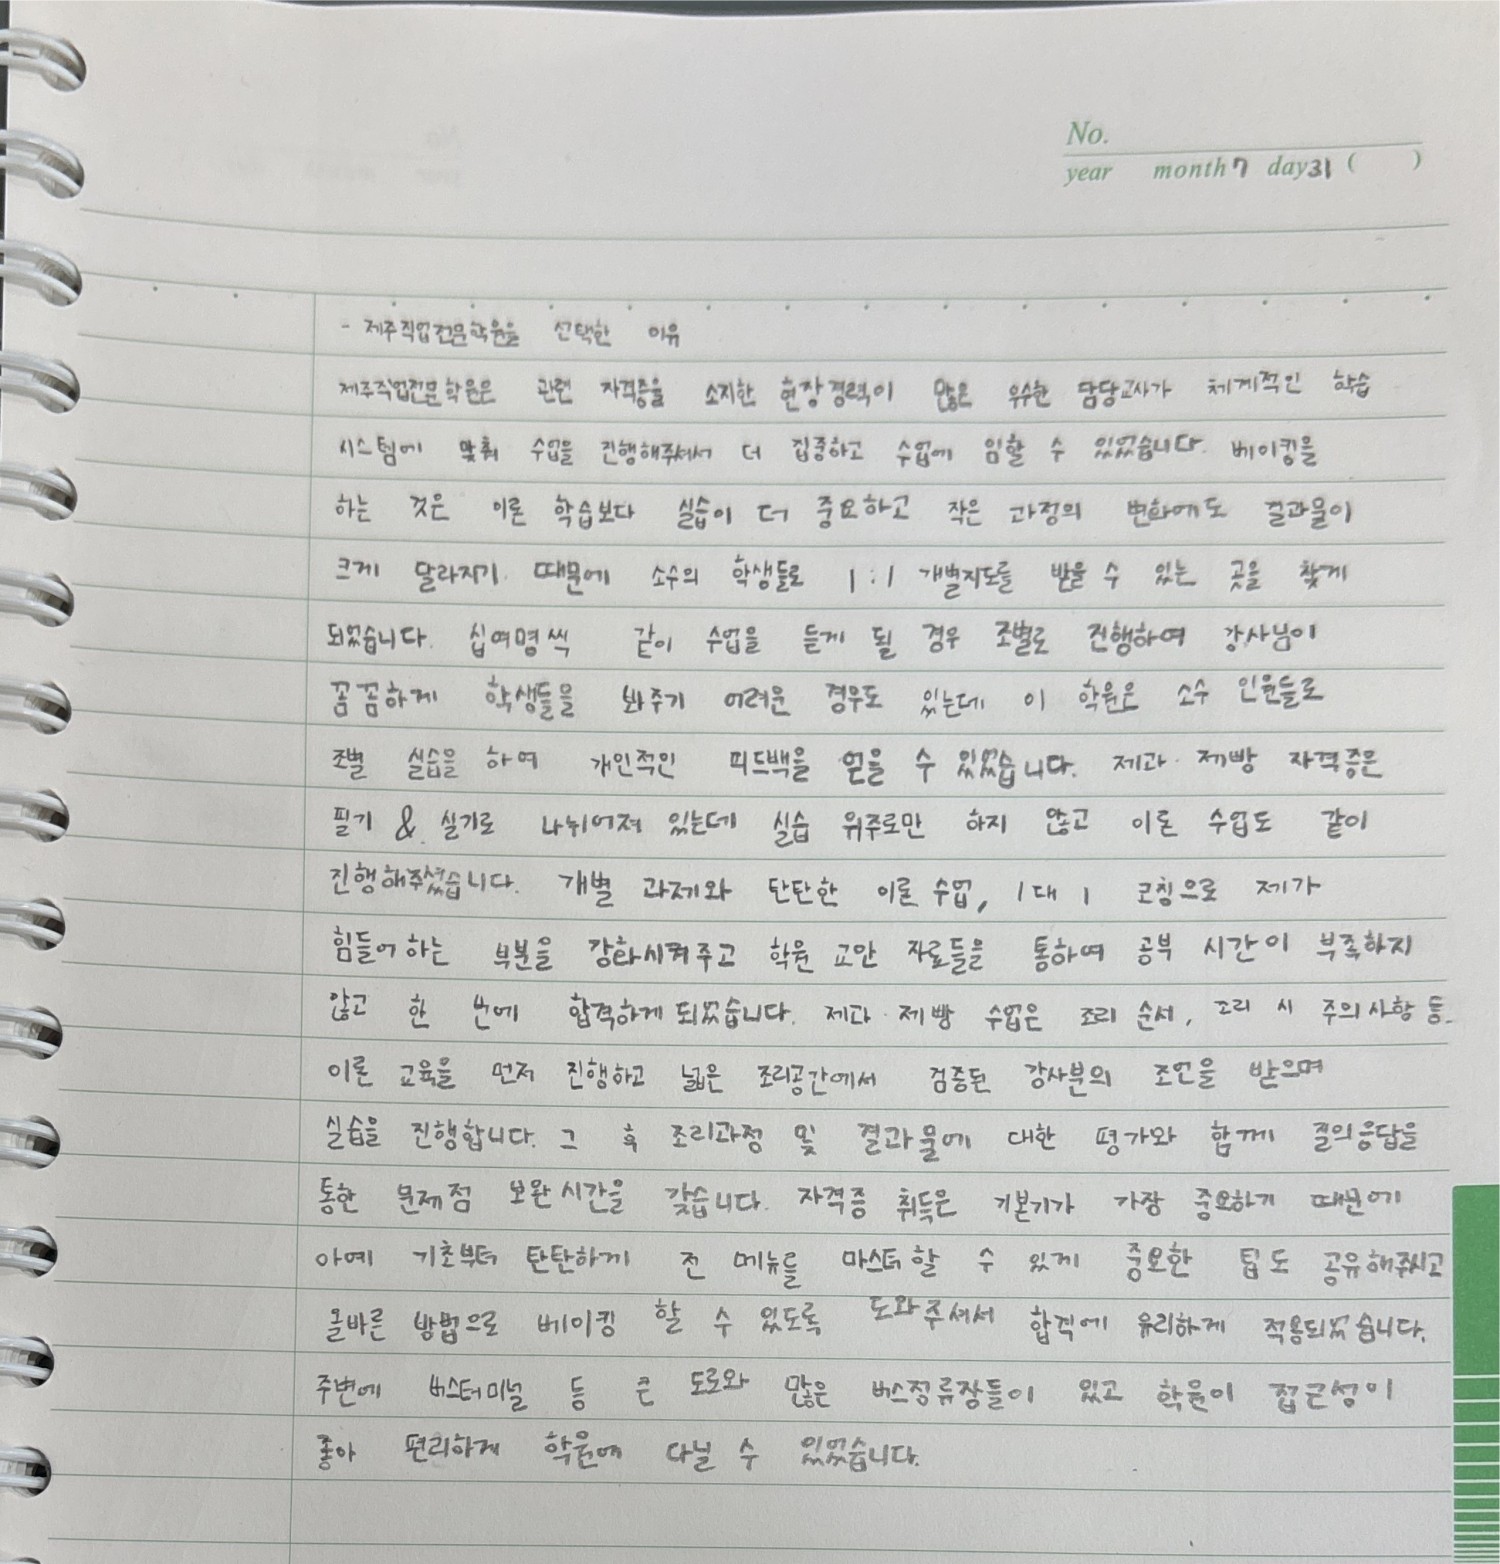 No.
year month 7 day 31 ( )
- 제주직업전문학원을 선택한 이유
제주직업전문학원은 관련 자격증을 소지한 현장경력이 많은 우수한 담당교사가 체계적인 학습
시스템에 맞춰 수업을 진행해주셔서 더 집중하고 수업에 임할 수 있었습니다. 베이킹을
하는 것은 이론 학습보다 실습이 더 중요하고 작은 과정의 변화에도 결과물이
크게 달라지기 때문에 소수의 학생들로 1:1 개별지도를 받을 수 있는 곳을 찾게
되었습니다. 십여명씩 같이 수업을 듣게 될 경우 조별로 진행하여 강사님이
꼼꼼하게 학생들을 봐주기 어려운 경우도 있는데 이 학원은 소수 인원들로
조별 실습을 하여 개인적인 피드백을 얻을 수 있었습니다. 제과·제빵 자격증은
필기 & 실기로 나뉘어져 있는데 실습 위주로만 하지 않고 이론 수업도 같이
진행해주셨습니다. 개별 과제와 탄탄한 이론 수업, 1대1 코칭으로 제가
힘들어하는 부분을 강화시켜주고 학원 교안 자료들을 통하여 공부 시간이 부족하지
않고 한 번에 합격하게 되었습니다. 제과·제빵 수업은 조리 순서, 조리 시 주의사항 등
이론 교육을 먼저 진행하고 넓은 조리공간에서 검증된 강사분의 조언을 받으며
실습을 진행합니다. 그 후 조리과정 및 결과물에 대한 평가와 함께 질의응답을
통한 문제점 보완시간을 갖습니다. 자격증 취득은 기본기가 가장 중요하기 때문에
아예 기초부터 탄탄하게 전 메뉴를 마스터할 수 있게 중요한 팁도 공유해주시고
올바른 방법으로 베이킹 할 수 있도록 도와주셔서 합격에 유리하게 적용되었습니다.
주변에 버스터미널 등 큰 도로와 많은 버스정류장들이 있고 학원이 접근성이
좋아 편리하게 학원에 다닐 수 있었습니다.